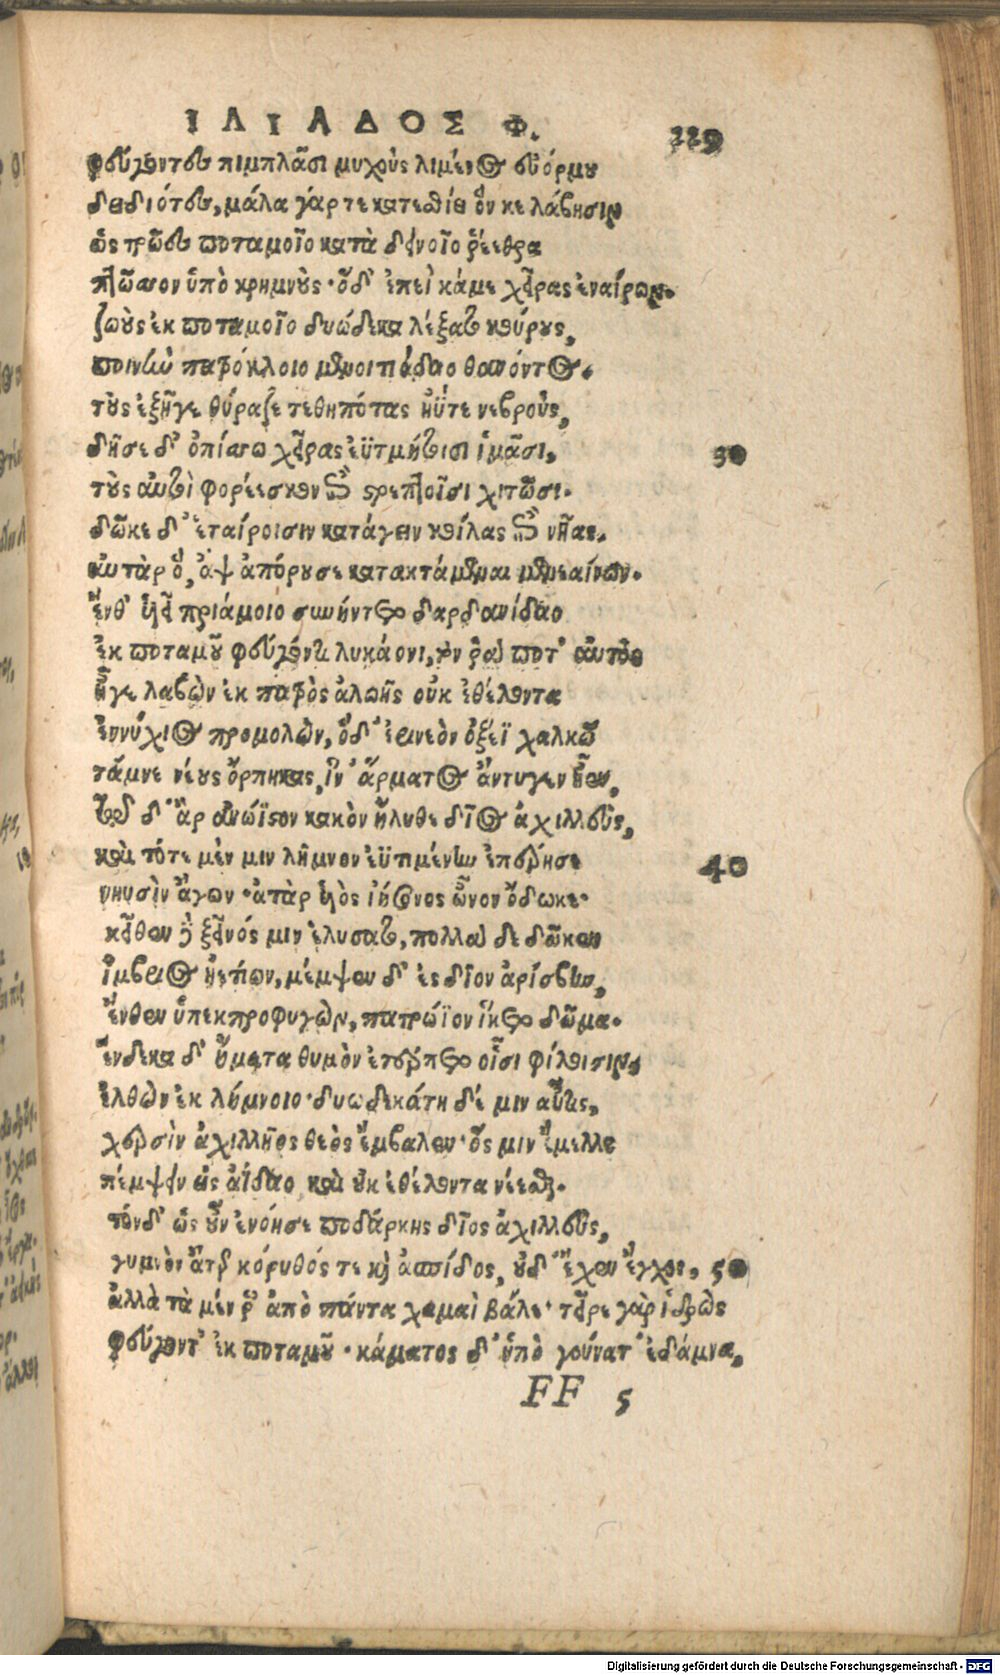 ΙΛΙΑΔΟΣ Φ.
229
φεύγοντες πιμπλᾶσι μυχοὺς λιμένος εὐόρμου
δειδιότες, μάλα γάρ τε κατεσθίει ὅν κε λάβησιν
ὣς τρῶες ποταμοῖο κατὰ δεινοῖο ῥέεθρα
πτῶσσον ὑπὸ κρημνούς· ὁ δ' ἐπεὶ κάμε χεῖρας ἐναίρων.
ζωοὺς ἐκ ποταμοῖο δυώδεκα λέξατο κούρους,
ποινὴν πατρόκλοιο μενοιτιάδαο θανόντος.
τοὺς ἐξῆγε θύραζε τεθηπότας ἠΰτε νεβροὺς,
δῆσε δ' ὀπίσσω χεῖρας ἐϋτμήτοισι ἱμᾶσι,
30
τοὺς αὐτοὶ φορέεσκον ἐπὶ στρεπτοῖσι χιτῶσι.
δῶκε δ' ἑταίροισιν κατάγειν κοίλας ἐπὶ νῆας.
αὐτὰρ ὁ, ἂψ ἀπόρουσε κατακτάμεναι μενεαίνων.
ἔνθ' υἷϊ πριάμοιο συνήντετο δαρδανίδαο
ἐκ ποταμοῦ φεύγοντι λυκάονι, τόν ῥά ποτ' αὐτὸς
ἦγε λαβὼν ἐκ πατρὸς ἀλωῆς οὐκ ἐθέλοντα
ἐννύχιος προμολὼν, ὁ δ' ἐρινεὸν ὀξέϊ χαλκῶ
τάμνε νέους ὄρπηκας, ἵν' ἅρματος ἄντυγες εἶεν,
τῷ δ' ἄρ ἀνώϊστον κακὸν ἤλυθε δῖος ἀχιλλεὺς,
καὶ τότε μὲν μιν λῆμνον ἐϋκτιμένην ἐπέρησε
40
νηυσὶν ἄγων· ἀτὰρ υἱὸς ἰήσονος ὦνον ἔδωκε·
κεῖθεν δὲ ξεῖνός μιν ἐλύσατο, πολλὰ δὲ δῶκεν
ἴμβριος ἠετίων, πέμψεν δ' ἐς δῖον ἀρίσβην,
ἔνθεν ὑπεκπροφυγὼν, πατρώϊον ἵκετο δῶμα.
ἕνδεκα δ' ἤματα θυμὸν ἐτέρπετο οἷσι φίλοισιν,
ἐλθὼν ἐκ λήμνοιο· δυωδεκάτη δέ μιν αὖτις,
χερσὶν ἀχιλλῆος θεὸς ἔμβαλεν· ὅς μιν ἔμελλε
πέμψειν εἰς ἀΐδαο καὶ οὐκ ἐθέλοντα νέεσθαι.
τὸν δ' ὡς οὖν ἐνόησε ποδάρκης δῖος ἀχιλλεὺς,
γυμνὸν ἄτερ κόρυθός τε καὶ ἀσπίδος, οὐδ' ἔχεν ἔγχος,
50
ἀλλὰ τὰ μέν ῥ' ἀπὸ πάντα χαμαὶ βάλε· τεῖρε γὰρ ἱδρὼς
φεύγοντ' ἐκ ποταμοῦ· κάματος δ' ὑπὸ γούνατ' ἐδάμνα,
FF 5
Digitalisierung gefördert durch die Deutsche Forschungsgemeinschaft - DFG